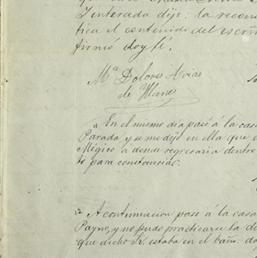 Enterada dijo: la recono
tica el contenido del escri
firmó doy fe.
Mª. Dolores
de Llanes
En el mismo dia pasé á la casa
Parada y se me dijo en ella que
Mégico a donde regresaria dentro
to para constancia.
A continuacion pasé á la casa
Payno, y no pude practicar la d
que dicho Sr. estaba en el baño. do